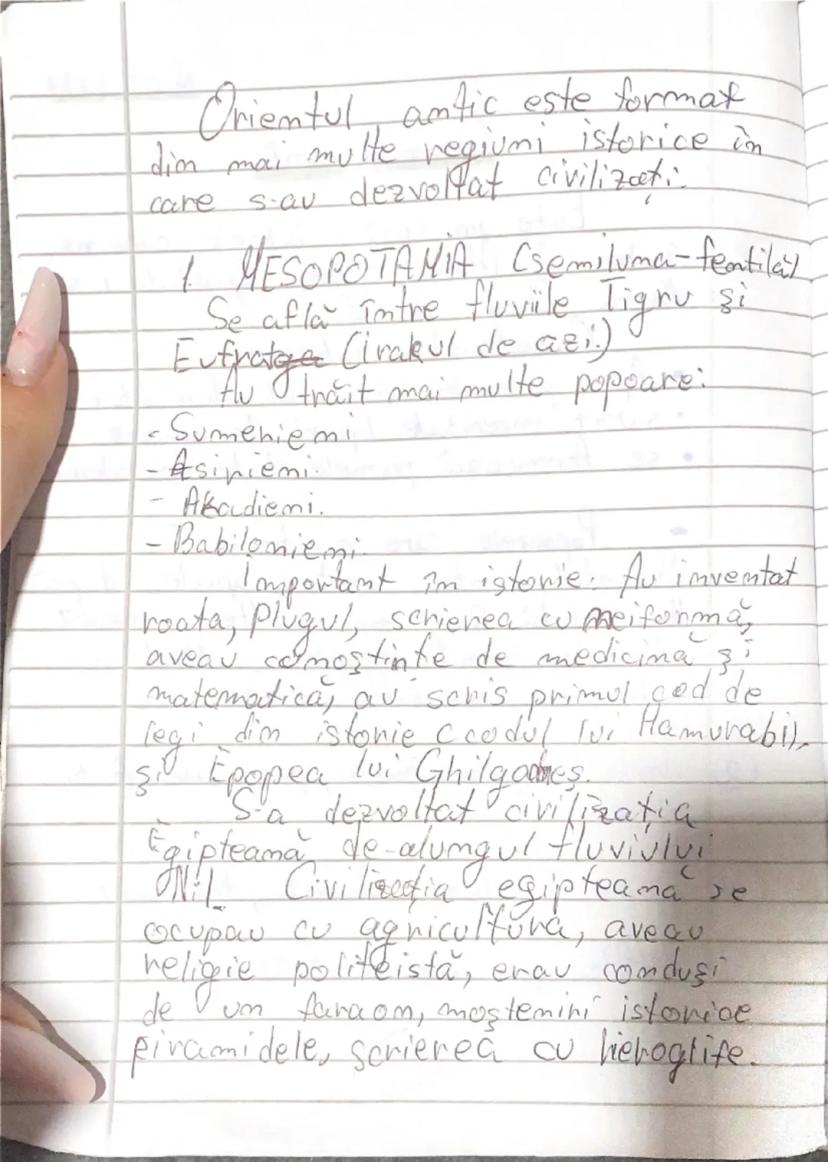 Orientul antic este format
din mai multe regiuni istorice în
care s-au dezvoltat civilizați.
1. MESOPOTAMIA (semiluna-fertilă)
Se află între fluviile Tigru și
Eufrat (irakul de azi.)
Au trăit mai multe popoare:
- Sumerieni
- Asirieni.
- Akadieni.
- Babilonieni.
Important în istorie. Au inventat
roata, plugul, scrierea cuneiformă,
aveau cunoștințe de medicină și
matematică, au scris primul cod de
legi din istorie (codul lui Hamurabi),
și Epopea lui Ghilgameș.
S-a dezvoltat civilizația
Egipteană de-alungul fluviului
Nil. Civilizația egipteană se
ocupau cu agricultura, aveau
religie politeistă, erau conduși
de un faraon, moșteniri istorice
piramidele, scrierea cu hieroglife.